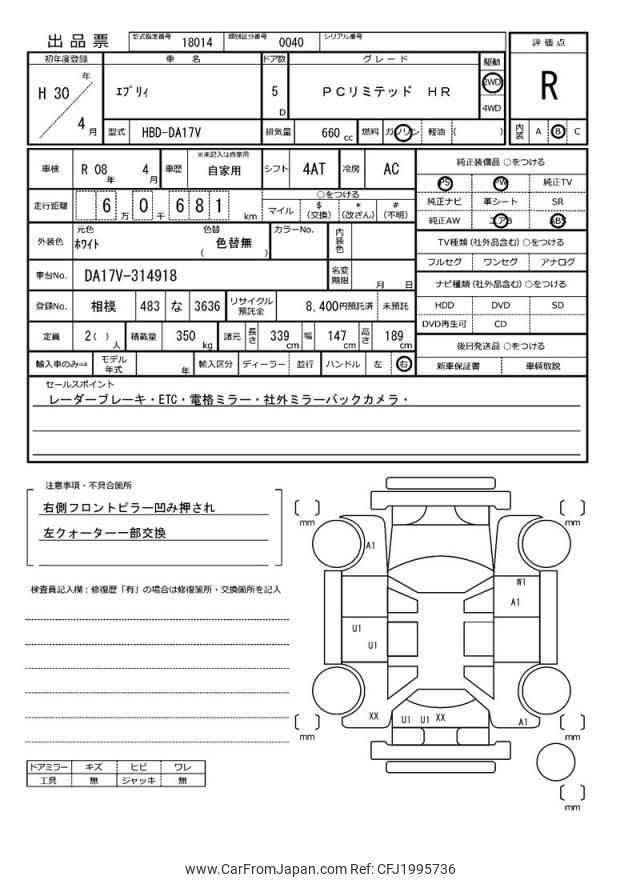 出品票 型式指定番号 18014 類別区分番号 0040 シリアル番号
評価点
R
初年度登録 車名 ドア数 グレード 駆動
H 30 年 4 月
ｴﾌﾞﾘｨ
5 D
PCリミテッド HR
2WD
4WD
型式 HBD-DA17V 排気量 660 cc 燃料 ガソリン 軽油 ( )
内装 A B C
車検 R 08 年 4 月 車歴 ※未記入は自家用 自家用 シフト 4AT 冷房 AC
純正装備品 ○をつける
PS PW 純正TV
純正ナビ 革シート SR
純正AW エアB ABS
走行距離 6 万 0 千 6 8 1 km
○をつける
マイル $ (交換) * (改ざん) # (不明)
外装色 元色 ﾎﾜｲﾄ 色替 ( 色替無 ) カラーNo. 内装色
TV種類 (社外品含む) ○をつける
フルセグ ワンセグ アナログ
車台No. DA17V-314918 名変期限 月 日
ナビ種類 (社外品含む) ○をつける
HDD DVD SD
DVD再生可 CD
登録No. 相模 483 な 3636 リサイクル預託金 8,400円預託済 未預託
定員 2( ) 人 積載量 350 kg 諸元 長さ 339 cm 幅 147 cm 高さ 189 cm
後日発送品 ○をつける
新車保証書 車輌取説
輸入車のみ⇨ モデル年式 年 輸入区分 ディーラー 並行 ハンドル 左 右
セールスポイント
レーダーブレーキ・ETC・電格ミラー・社外ミラーバックカメラ・
注意事項・不具合箇所
右側フロントピラー凹み押され
左クォーター一部交換
検査員記入欄：修復歴「有」の場合は修復箇所・交換箇所を記入
mm
mm
A1
W1
A1
U1
U1
XX
U1 U1 XX
A1
mm
mm
mm
ドアミラー キズ ヒビ ワレ
工具 無 ジャッキ 無
www.CarFromJapan.com Ref: CFJ1995736